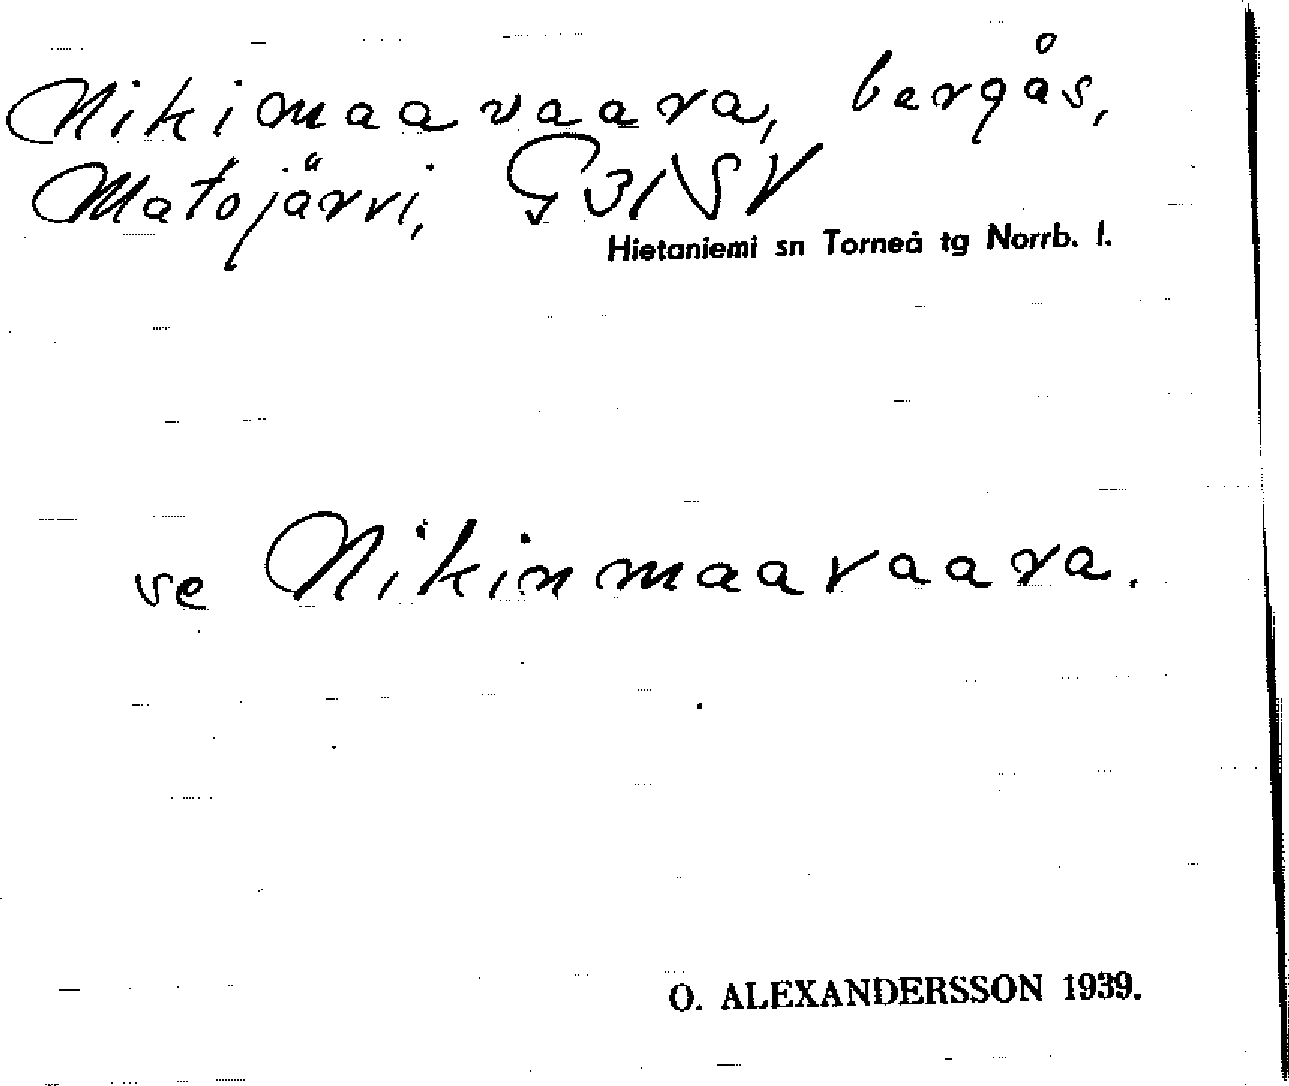 Nikimaavaara, bergås,
Matojärvi, G31SV
Hietaniemi sn Torneå tg Norrb. l.
se Nikinmaavaara.
O. ALEXANDERSSON 1939.